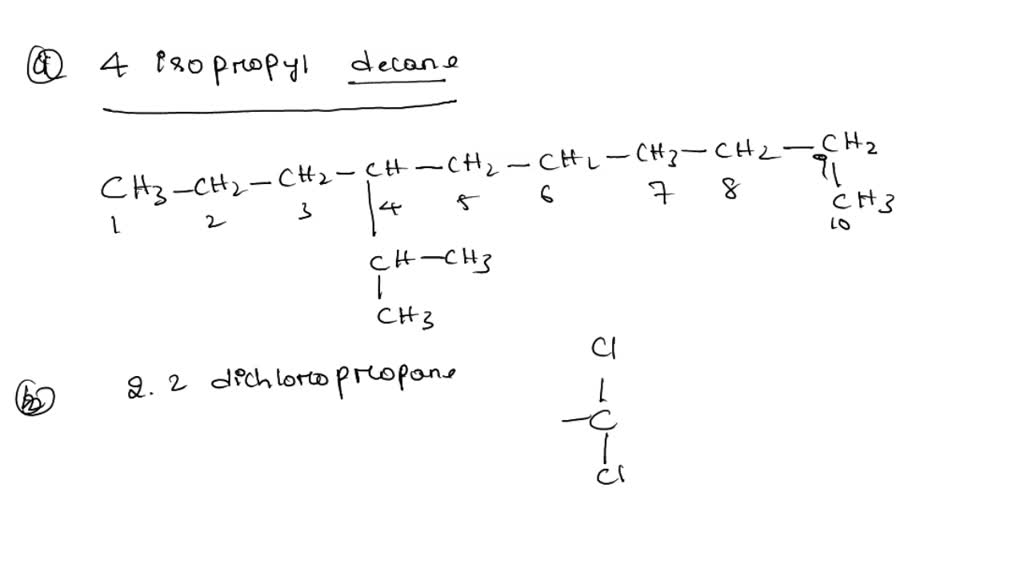 a 4 isopropyl decane
CH3-CH2-CH2-CH-CH2-CH2-CH3-CH2-CH2
1 2 3 4 5 6 7 8 9
CH3
10
CH-CH3
CH3
b 2.2 dichloropropane
Cl
-C
Cl